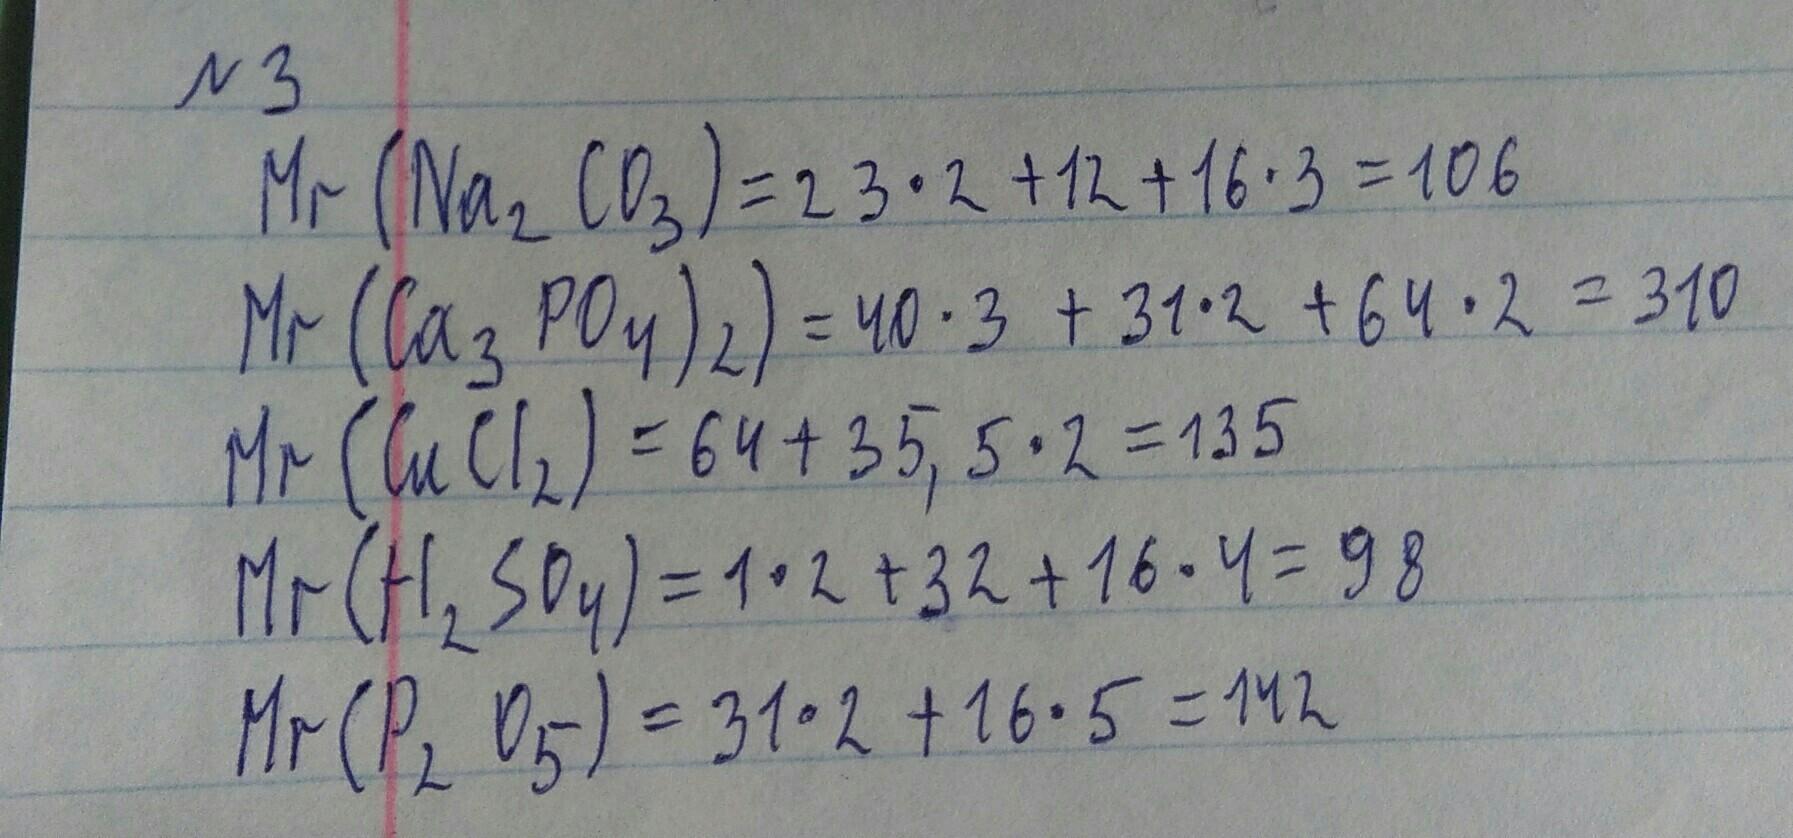 №3
Mr(Na₂CO₃)=23·2+12+16·3=106
Mr(Ca₃PO₄)₂)=40·3+31·2+64·2=310
Mr(CuCl₂)=64+35,5·2=135
Mr(H₂SO₄)=1·2+32+16·4=98
Mr(P₂O₅)=31·2+16·5=142